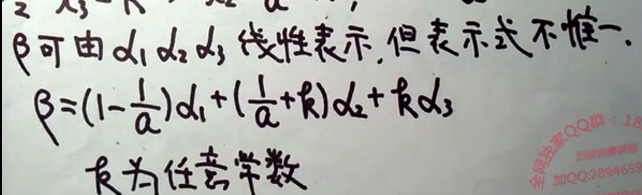 β可由α₁ α₂ α₃ 线性表示,但表示式不惟一.
β=(1-1/a)α₁+(1/a+k)α₂+kα₃
k为任意常数
全网独家QQ群:18
后续完整课程
加QQ:2894659